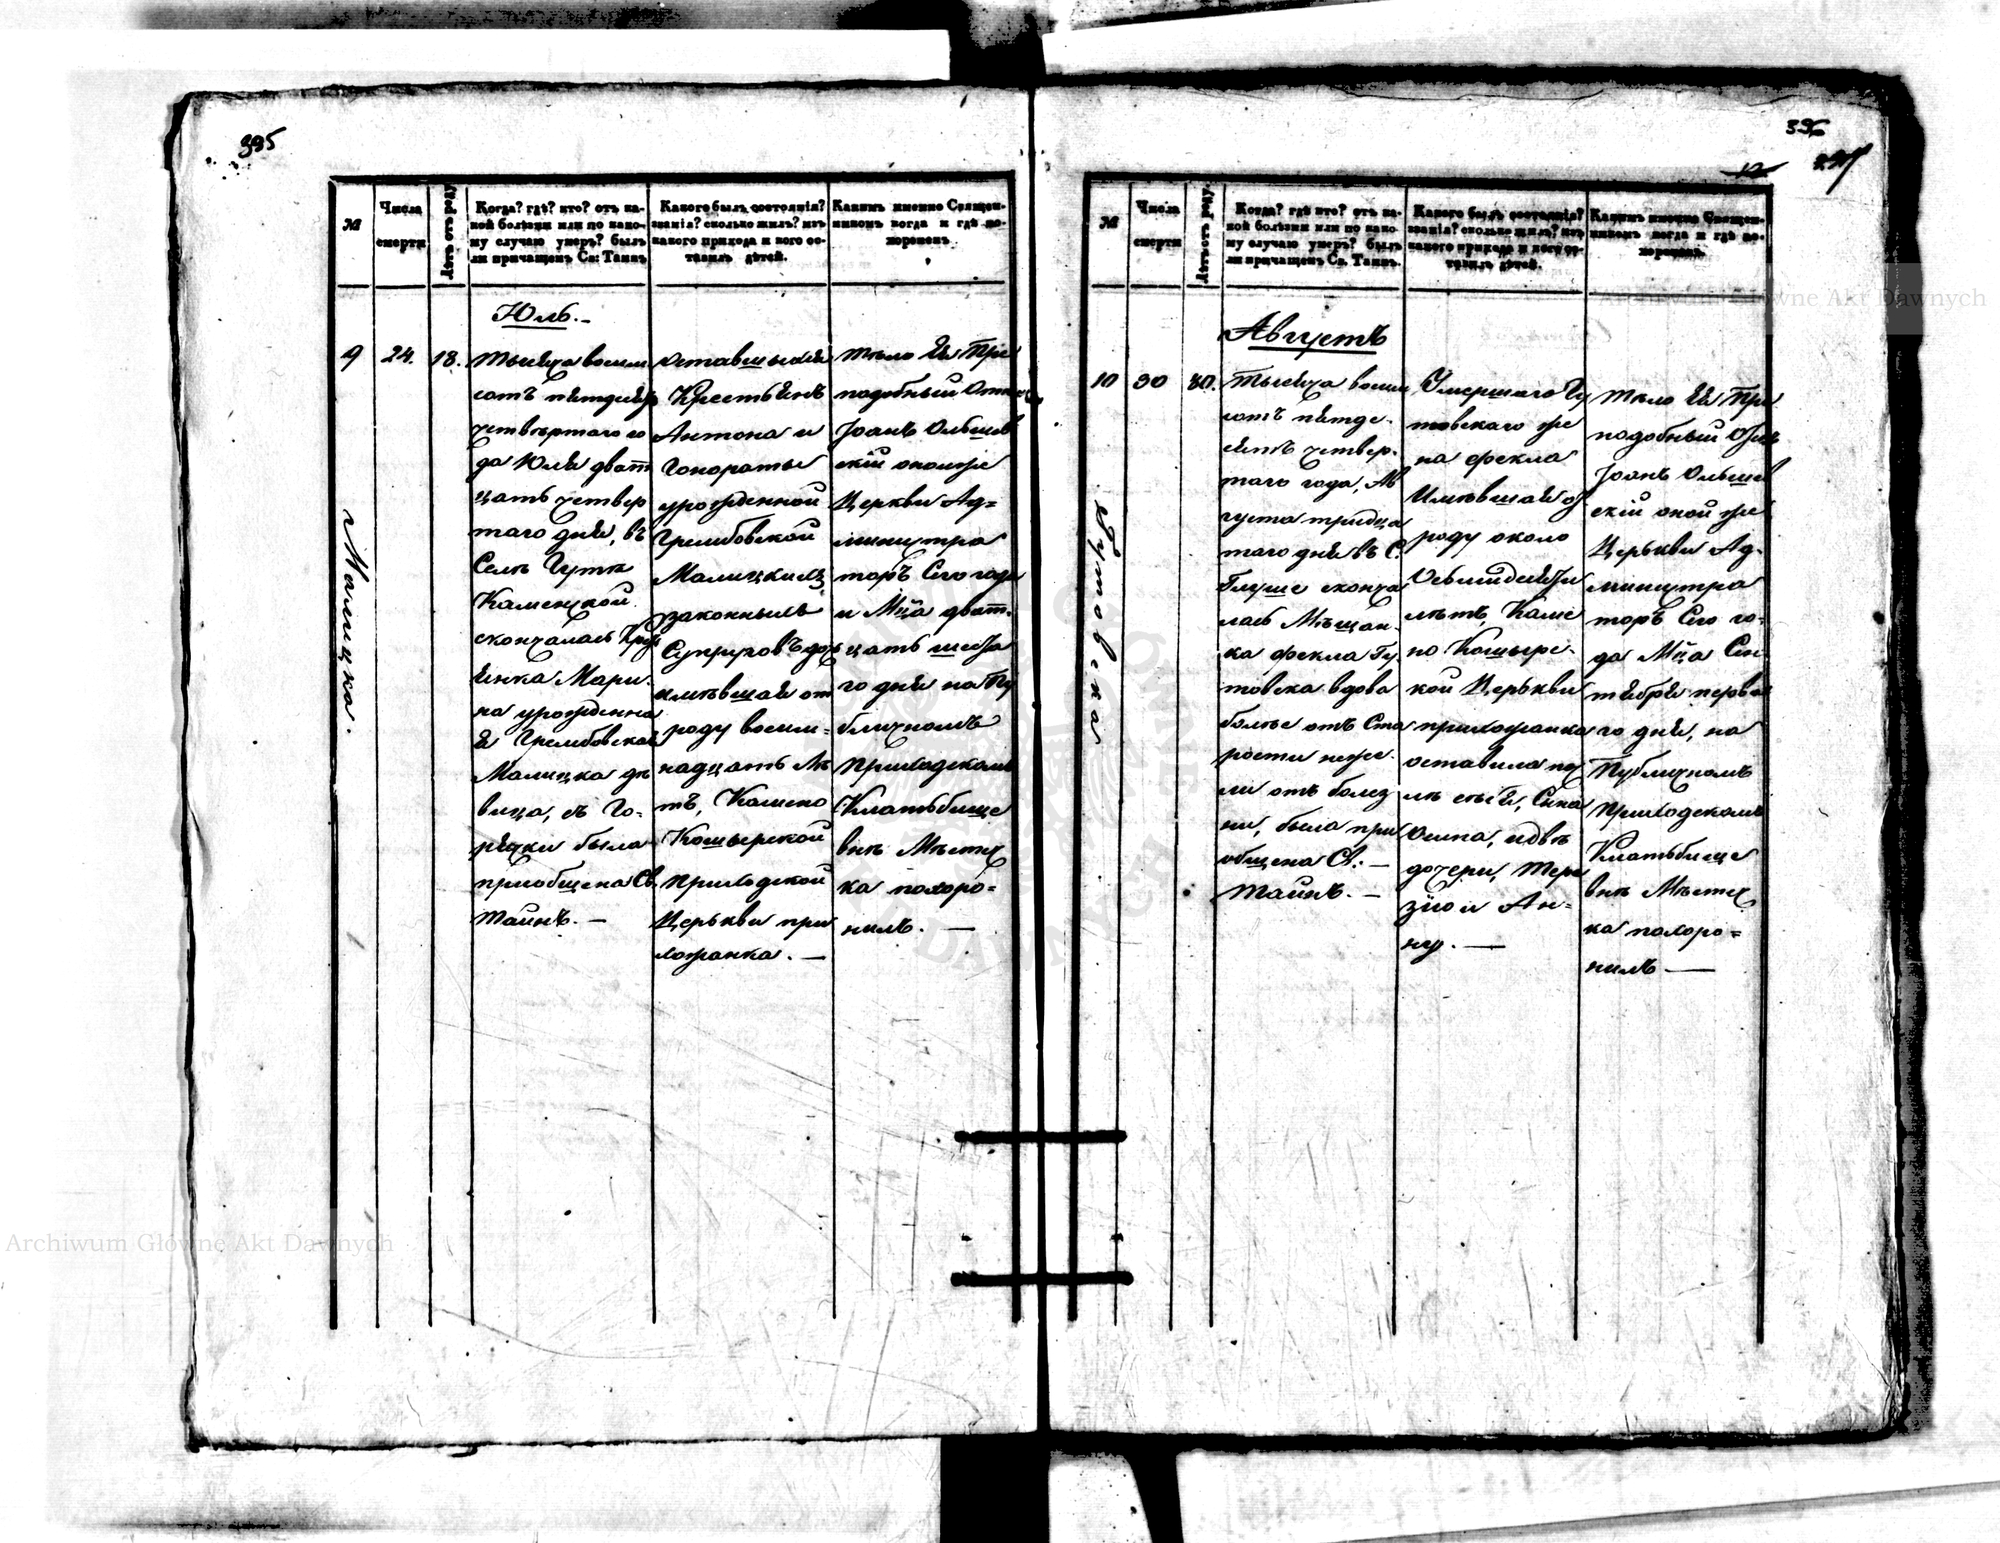 395
№
Числа смерти
Лѣтъ отъ роду
Когда? гдѣ? кто? отъ ка-
кой болѣзни или по како-
му случаю умеръ? былъ
ли причащенъ Св: Таинъ
Какого былъ состоянія?
званія? сколько жилъ? изъ
какого прихода и кого ос-
тавилъ дѣтей.
Какимъ именно Священ-
никомъ когда и гдѣ по-
хороненъ.
Юль.-
9
24.
18.
Малицка.
тысяча восем
сотъ пятдеся
четвертого го
да Юля дват
цать четвер
таго дня, въ
Селѣ Гутѣ
Каменской
скончалась
янка Мари
на урожденна
я Грембовска
Малицка дѣ
вица, съ Го-
рячки была
приобщена Св
таинъ. —
оставшыхся
Крестьянъ
Антона и
Гонораты
урожденной
Грембовской
Малицкихъ
законныхъ
Супруговъ дочь
имѣвшая от
роду восем-
надцать лѣ
тъ, Камено
Кошырской
приходской
Церькви при
хожанка. —
тѣло Ея Пре
подобный Отец
Іоанъ Ольшев
скій оной же
Церкви Ад-
министра
торъ Сего года
и Мца дват-
цать шеста
го дня на Пу
бличномъ
приходскомъ
Кладьбище
внѣ Мѣстеч
ка похоро-
нилъ. —
396
12
№
Числа смерти
Лѣтъ отъ роду.
Когда? гдѣ кто? отъ ка-
кой болѣзни или по како-
му случаю умеръ? былъ
ли причащенъ Св. Таинъ.
Какого былъ состоянія?
званія? сколько жилъ? изъ
какого прихода и кого ос-
тавилъ дѣтей.
Какимъ именно Священ-
никомъ когда и гдѣ по-
хороненъ.
Августъ
10
30
80.
Гутовска
тысяча восем
сотъ пятде-
сятъ четвер-
таго года, Ав
густа тридца
таго дня въ С.
Глуше сконча
лась Мѣщан-
ка Фекла Гу
товска вдова
болѣе отъ Ста
рости неже-
ли отъ болез
ни, была при
общена С.: —
таинъ. —
Умершаго Гу
товскаго же
на Фекла
Имѣвшая от
роду около
осьмидесяти
лѣтъ, Каме
но Кошыр-
кой Церькви
прихожанка
оставила по
лѣ себя, Сына
Осипа, и двѣ
дочери, Тере
зію и Ан-
ну. —
тѣло Ея Пре
подобный Отец
Іоанъ Ольшев
скій оной же
Церькви Ад-
министра
торъ Сего го-
да Мца Сен
тября перва
го дня, на
Публичномъ
приходскомъ
Кладьбище
внѣ Мѣстеч
ка похоро-
нилъ —
Archiwum Główne Akt Dawnych
Archiwum Główne Akt Dawnych